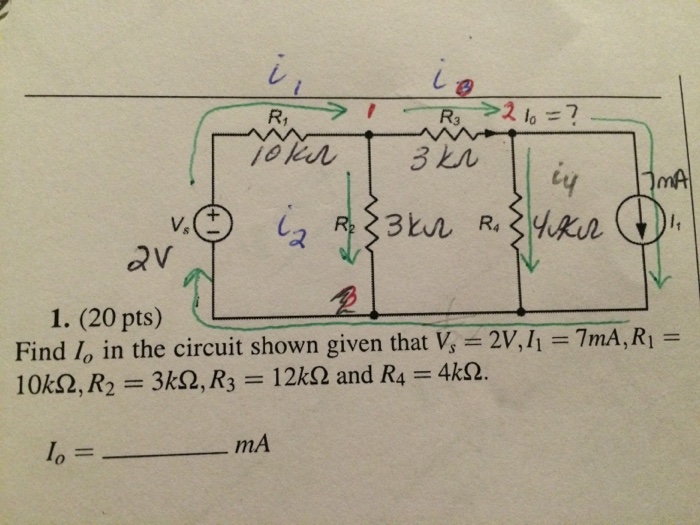 i₁ i₃
R₁ 1 R₃ 2 I₀ = ?
10kΩ 3kΩ
i₄ 7mA
Vₛ + − i₂ R₂ 3kΩ R₄ 4kΩ I₁
2V
3
1. (20 pts)
Find Iₒ in the circuit shown given that Vₛ = 2V, I₁ = 7mA, R₁ =
10kΩ, R₂ = 3kΩ, R₃ = 12kΩ and R₄ = 4kΩ.
Iₒ = ________ mA